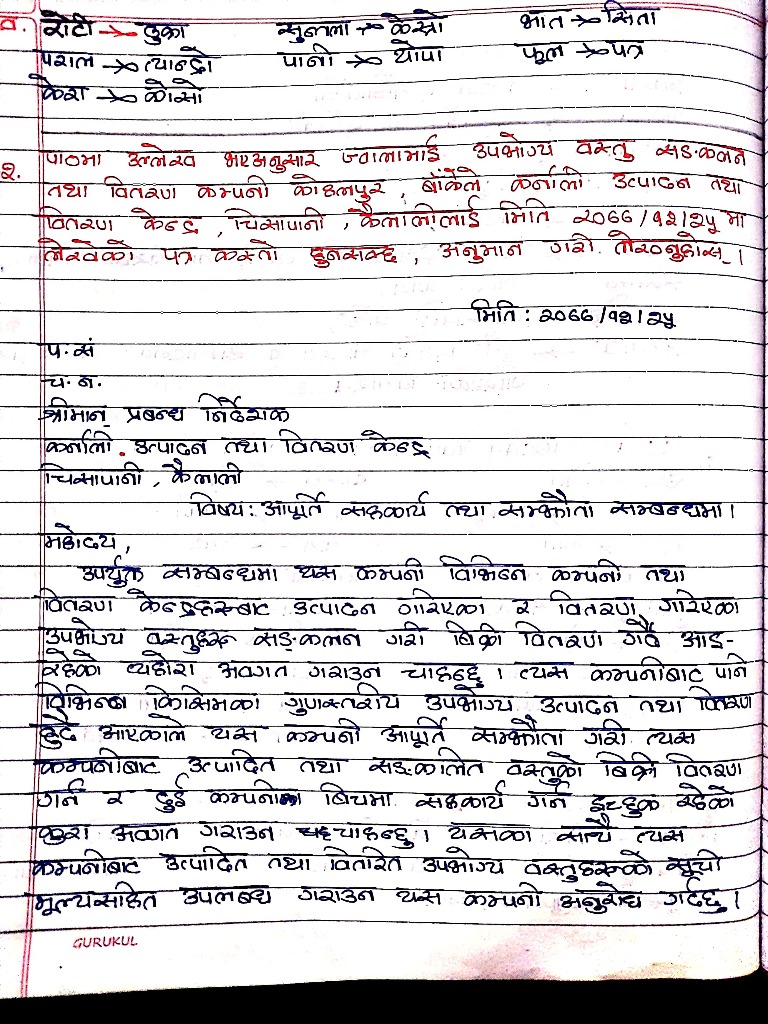 व. रोटी → टुक्रा सुनतला → केस्रो भात → सिता
पराल → त्यान्द्रो पानी → थोपा फूल → पत्र
केरा → कोसो
२. पाठमा उल्लेख भएअनुसार ज्वालामाई उपभोग्य वस्तु सङ्कलन
तथा वितरण कम्पनी कोहलपुर, बाँकेले कर्नाली उत्पादन तथा
वितरण केन्द्र, चिसापानी, कैलालीलाई मिति २०६६/१२/२५ मा
लेखेको पत्र कस्तो हुनसक्छ, अनुमान गरी लेख्नुहोस् ।
मिति : २०६६/१२/२५
प.सं
च.न.
श्रीमान् प्रबन्ध निर्देशक
कर्नाली उत्पादन तथा वितरण केन्द्र
चिसापानी, कैलाली
विषय: आपूर्ति सहकार्य तथा सम्झौता सम्बन्धमा ।
महोदय,
उपर्युक्त सम्बन्धमा यस कम्पनी विभिन्न कम्पनी तथा
वितरण केन्द्रहरूबाट उत्पादन गरिएका र वितरण गरिएका
उपभोग्य वस्तुहरू सङ्कलन गरी बिक्री वितरण गर्दै आइ-
रहेको व्यहोरा अवगत गराउन चाहन्छु । त्यस कम्पनीबाट पनि
विभिन्न किसिमका गुणस्तरीय उपभोग्य उत्पादन तथा वितरण
हुँदै आएकाले यस कम्पनी आपूर्ति सम्झौता गरी त्यस
कम्पनीबाट उत्पादित तथा सङ्कलित वस्तुको बिक्री वितरण
गर्न र दुई कम्पनीका बिचमा सहकार्य गर्न इच्छुक रहेको
कुरा अवगत गराउन चाहन्छु । यसका साथै त्यस
कम्पनीबाट उत्पादित तथा वितरित उपभोग्य वस्तुहरूको सूची
मूल्यसहित उपलब्ध गराउन यस कम्पनी अनुरोध गर्दछु ।
GURUKUL